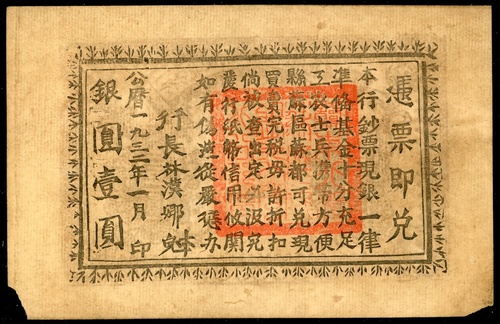 憑票即兑
本行鈔票現銀一律
準俻基金十分充足
工农士兵携帶方便
縣蘇區蘇都可兑現
買賣完税毋許折扣
倘被查出定必
發行紙幣信用攸関
如有偽造從嚴懲办
行長林漢卿
公曆一九三二年一月印
銀圓壹圓